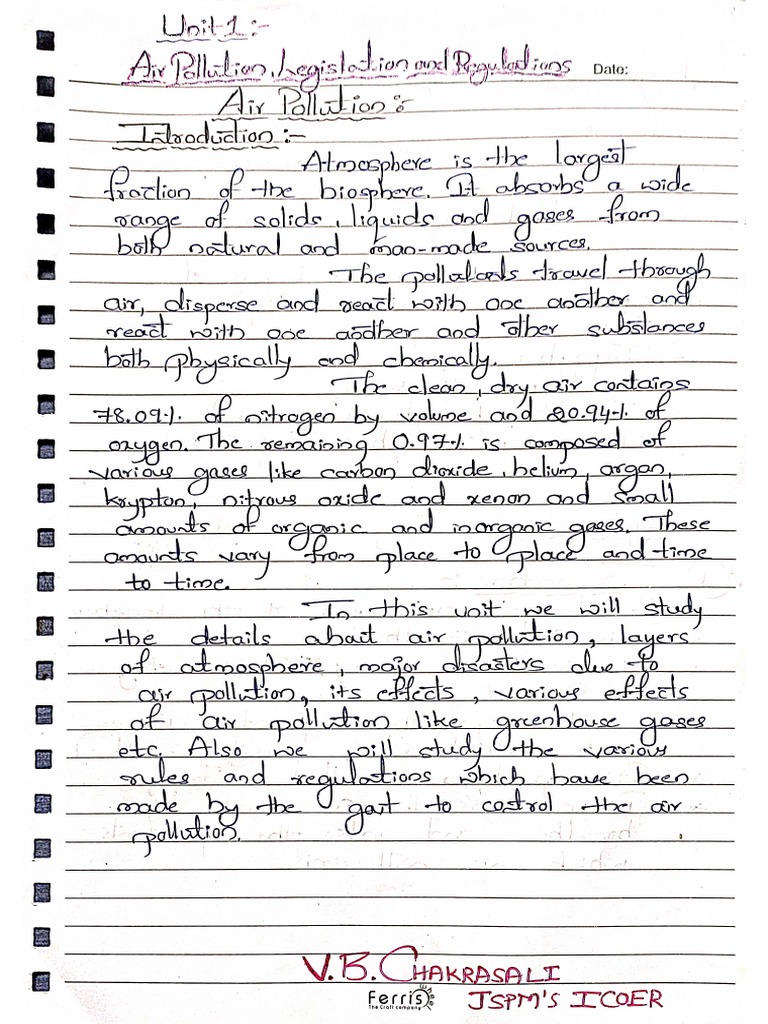 Unit-1:-
Air Pollution, Legislation and Regulations Date:
Air Pollution:-
Introduction:-
Atmosphere is the largest
fraction of the biosphere. It absorbs a wide
range of solids, liquids and gases from
both natural and man-made sources.
The pollutants travel through
air, disperse and react with one another and
react with one another and other substances
both physically and chemically.
The clean, dry air contains
78.09% of nitrogen by volume and 20.94% of
oxygen. The remaining 0.97% is composed of
various gases like carbon dioxide, helium, argan,
krypton, nitrous oxide and xenon and small
amounts of organic and inorganic gases. These
amounts vary from place to place and time
to time.
In this unit we will study
the details about air pollution, layers
of atmosphere, major disasters due to
air pollution, its effects, various effects
of air pollution like greenhouse gases
etc. Also we will study the various
rules and regulations which have been
made by the govt to control the air
pollution.
V.B. CHAKRASALI
Ferris wheel
The Craft company
JSPM'S ICOER